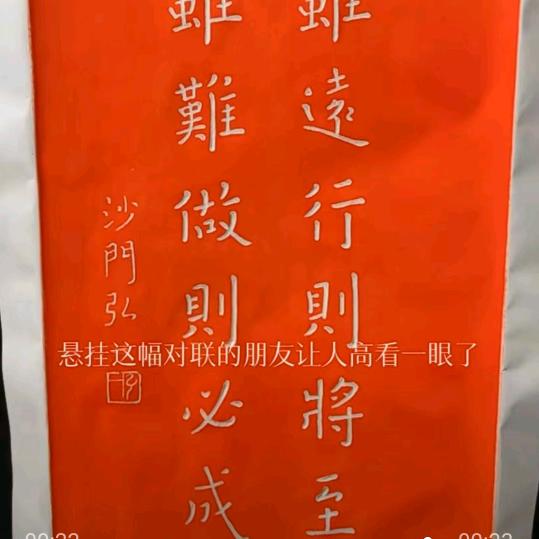 雖遠行則將至
雖難做則必成
沙門弘
悬挂这幅对联的朋友让人高看一眼了